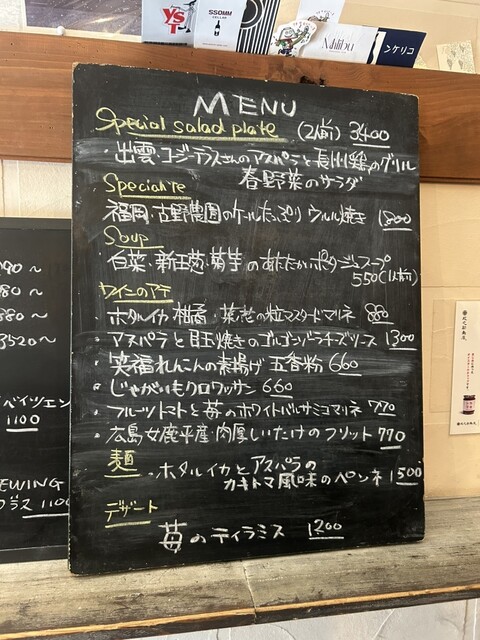 SSOMM
CELLAR
ンケリコ
MENU
Special salad plate (2人前) 3400
・出雲・コジーテラスさんのアスパラと長州鶏のグリル
春野菜のサラダ
Specialite
福岡・古野農園のケールたっぷり ウルル焼き 1800
Soup
白菜・新玉葱・菊芋のあたたかポタージュスープ
550(1人前)
ワインのアテ
・ホタルイカ 柑橘・菜花の粒マスタードマリネ 880
・アスパラと目玉焼きのゴルゴンパラチーズソース 1300
・笑福れんこんの素揚げ 五香粉 660
・じゃがいもクロワッサン 660
・フルーツトマトと苺のホワイトバルサミコマリネ 770
・広島女鹿平産・肉厚しいたけのフリット 770
麺
・ホタルイカとアスパラの
カキトマ風味のペンネ 1500
デザート
苺のティラミス 1200
880~
980~
3520~
ベイツェン
1100
EWING
グラス 1100